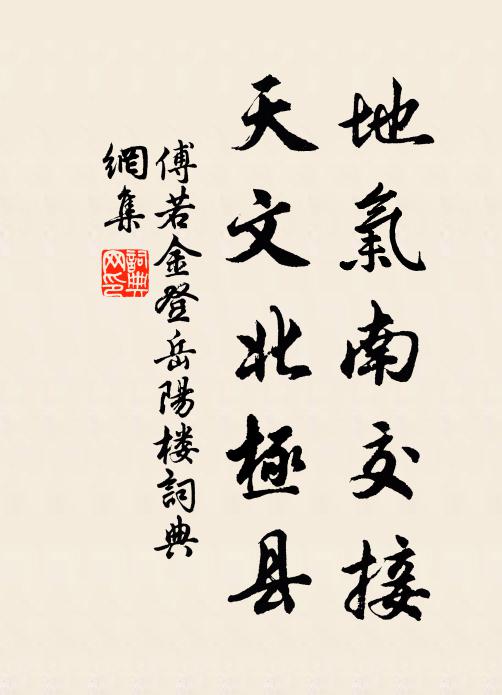 地氣南交接
天文北極县
傅若金登岳陽楼詞典
網集
詞典网印